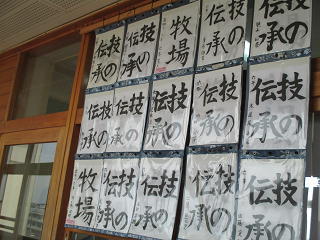 技の
伝承
技の
伝承
牧場
技の
伝承
技の
伝承
技の
伝承
技の
伝承
技の
伝承
技の
伝承
技の
伝承
技の
伝承
技の
伝承
技の
伝承
技の
伝承
牧場